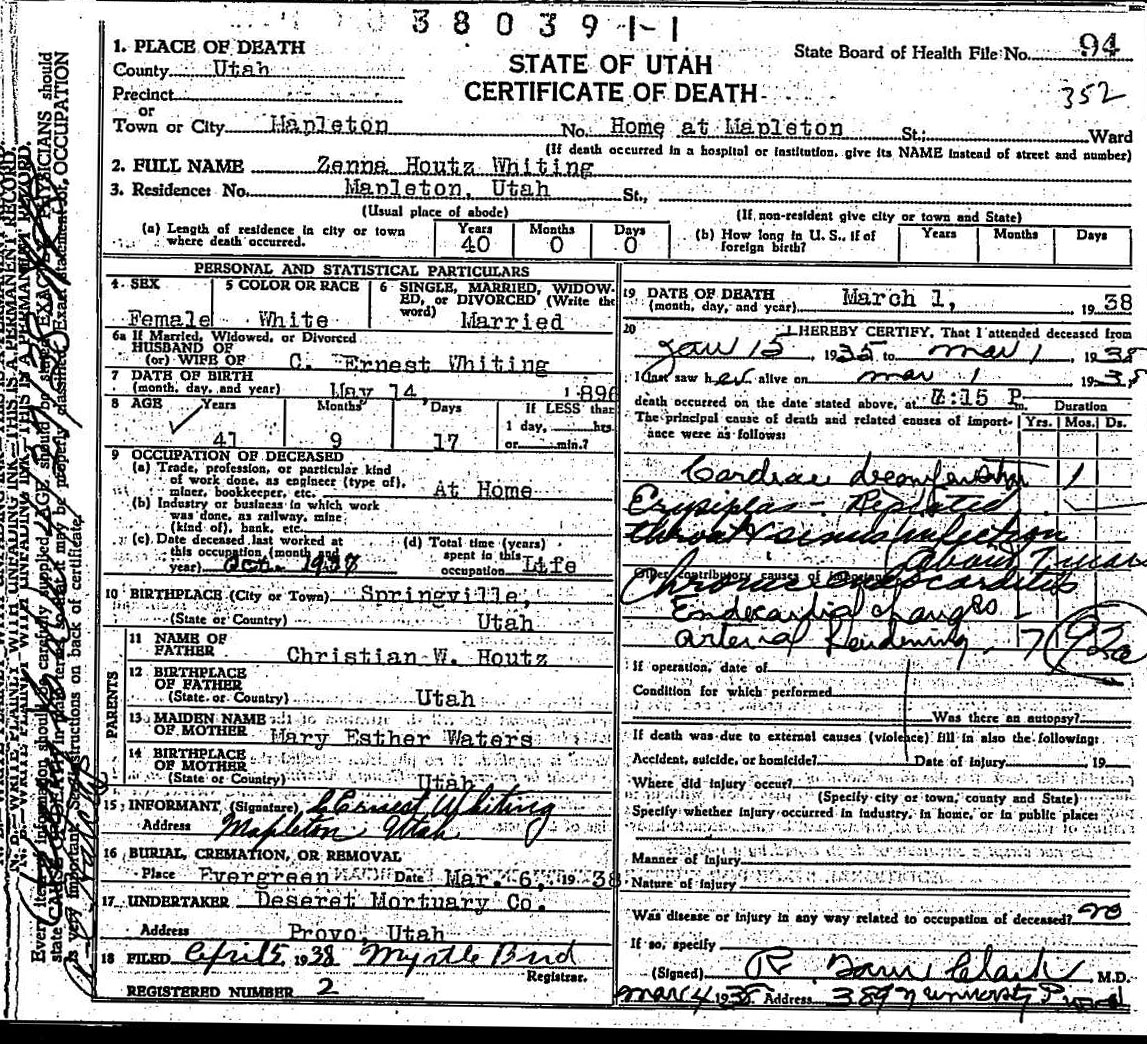 380391-1
1. PLACE OF DEATH
County Utah
STATE OF UTAH
CERTIFICATE OF DEATH
State Board of Health File No. 94
352
Precinct
or
Town or City Mapleton No. Home at Mapleton St.; Ward
(If death occurred in a hospital or institution, give its NAME instead of street and number)
2. FULL NAME Zenna Houtz Whiting
3. Residence: No. Mapleton, Utah St.,
(Usual place of abode) (If non-resident give city or town and State)
(a) Length of residence in city or town where death occurred. Years 40 Months 0 Days 0
(b) How long in U. S., if of foreign birth? Years Months Days
PERSONAL AND STATISTICAL PARTICULARS
4 SEX Female
5 COLOR OR RACE White
6 SINGLE, MARRIED, WIDOWED, or DIVORCED (Write the word) Married
6a If Married, Widowed, or Divorced
HUSBAND OF
(or) WIFE OF C. Ernest Whiting
7 DATE OF BIRTH
(month, day, and year) May 14, 1896
8 AGE Years 41 Months 9 Days 17
If LESS than 1 day, hrs. or min.?
9 OCCUPATION OF DECEASED
(a) Trade, profession, or particular kind of work done, as engineer (type of), miner, bookkeeper, etc. At Home
(b) Industry or business in which work was done, as railway, mine (kind of), bank, etc.
(c) Date deceased last worked at this occupation (month and year) Oct. 1937
(d) Total time (years) spent in this occupation Life
10 BIRTHPLACE (City or Town) Springville,
(State or Country) Utah
PARENTS
11 NAME OF FATHER Christian W. Houtz
12 BIRTHPLACE OF FATHER
(State or Country) Utah
13 MAIDEN NAME OF MOTHER Mary Esther Waters
14 BIRTHPLACE OF MOTHER
(State or Country) Utah
15 INFORMANT (Signature) C Ernest Whiting
Address Mapleton Utah
16 BURIAL, CREMATION, OR REMOVAL
Place Evergreen Date Mar. 6, 1938
17 UNDERTAKER Deseret Mortuary Co.
Address Provo, Utah
18 FILED April 5 1938 Myrtle Bird
Registrar.
REGISTERED NUMBER 2
19 DATE OF DEATH
(month, day, and year) March 1, 1938
20 I HEREBY CERTIFY, That I attended deceased from
Jan 15, 1935 to Mar 1, 1938
I last saw her alive on Mar 1 1938
death occurred on the date stated above, at 7:15 P m.
Duration
The principal cause of death and related causes of importance were as follows: Yrs. Mos. Ds.
Cardiac 1
Erysiplas - Repeated
throat & sinus infection
About
Other contributory causes of importance
Chronic
Endocardial changes -
Arterial Hardening. 7
If operation, date of
Condition for which performed
Was there an autopsy?
If death was due to external causes (violence) fill in also the following:
Accident, suicide, or homicide? Date of injury 19
Where did injury occur?
(Specify city or town, county and State)
Specify whether injury occurred in industry, in home, or in public place:
Manner of Injury
Nature of Injury
Was disease or injury in any way related to occupation of deceased? no
If so, specify
(Signed) R Clark M.D.
Mar 4 1938 Address 389 N University